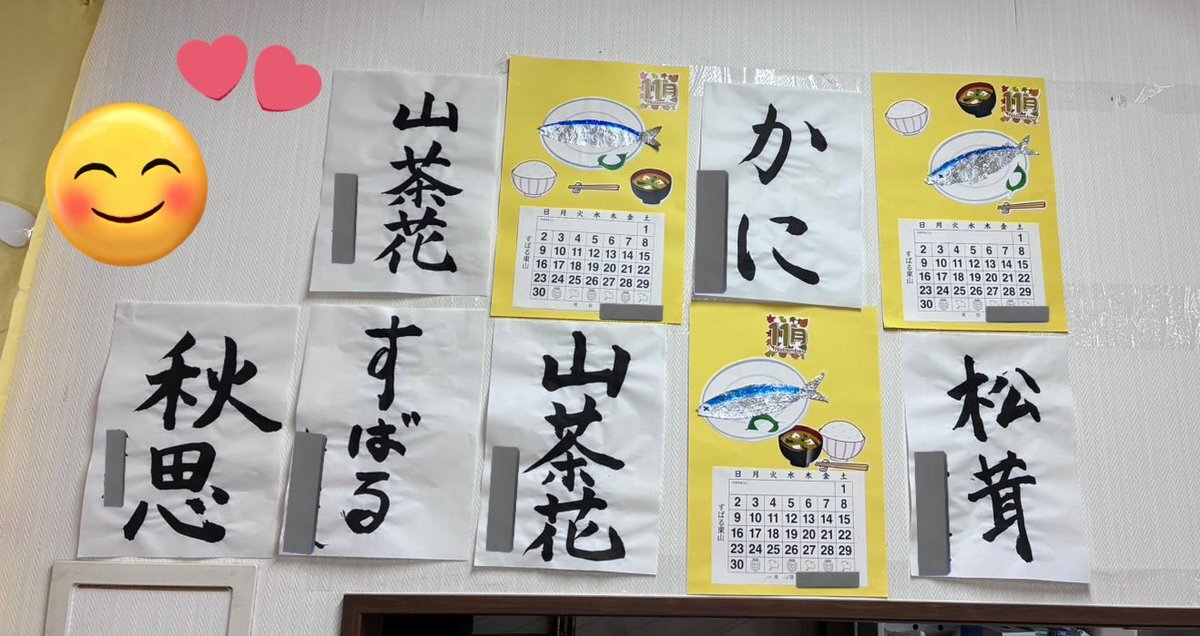 山茶花
11月
日 月 火 水 木 金 土
1
2 3 4 5 6 7 8
9 10 11 12 13 14 15
16 17 18 19 20 21 22
23 24 25 26 27 28 29
30
すばる東山
かに
11月
日 月 火 水 木 金 土
1
2 3 4 5 6 7 8
9 10 11 12 13 14 15
16 17 18 19 20 21 22
23 24 25 26 27 28 29
30
すばる東山
秋思
すばる
山茶花
11月
日 月 火 水 木 金 土
1
2 3 4 5 6 7 8
9 10 11 12 13 14 15
16 17 18 19 20 21 22
23 24 25 26 27 28 29
30
すばる東山
松茸